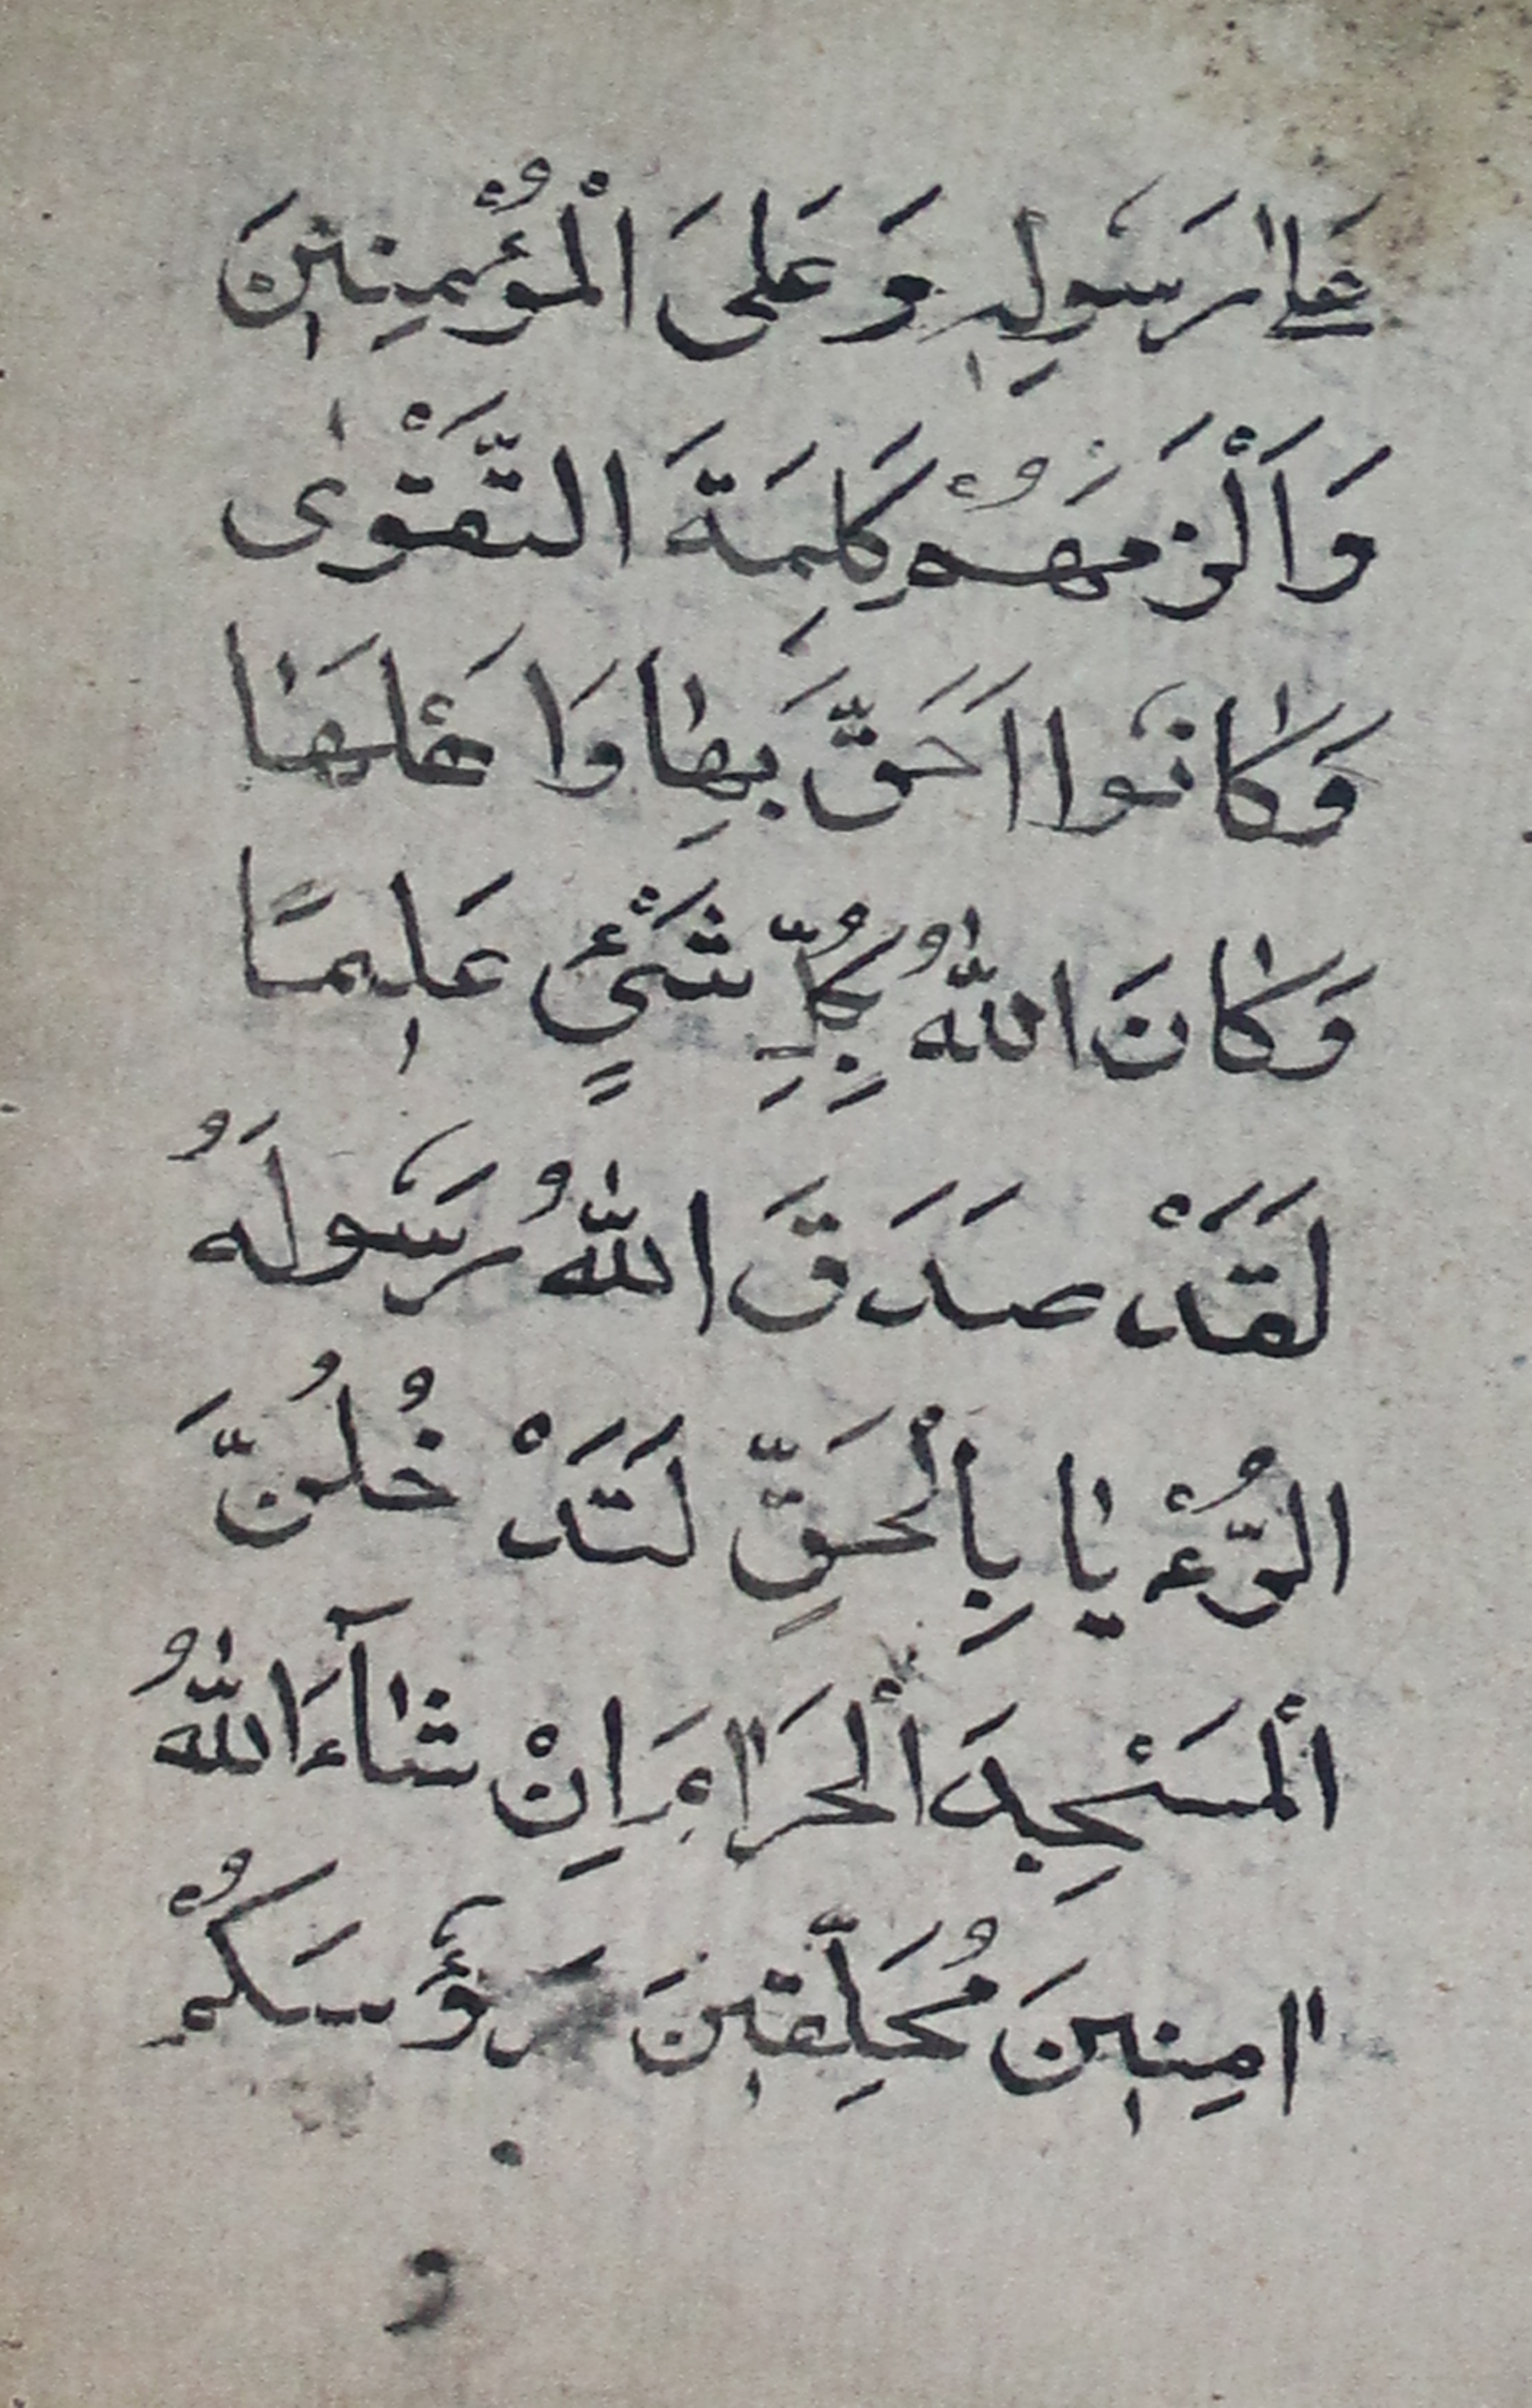 عَلٰى رَسُولِهٖ وَعَلَى الْمُؤْمِنٖينَ
وَاَلْزَمَهُمْ كَلِمَةَ التَّقْوٰى
وَكَانُوا اَحَقَّ بِهَا وَاَهْلَهَا
وَكَانَ اللّٰهُ بِكُلِّ شَیْءٍ عَلٖيمًا
لَقَدْ صَدَقَ اللّٰهُ رَسُولَهُ
الرُّءْيَا بِالْحَقِّ لَتَدْخُلُنَّ
الْمَسْجِدَ الْحَرَامَ اِنْ شَآءَ اللّٰهُ
اٰمِنٖينَ مُحَلِّقٖينَ رَؤُسَكُمْ
و